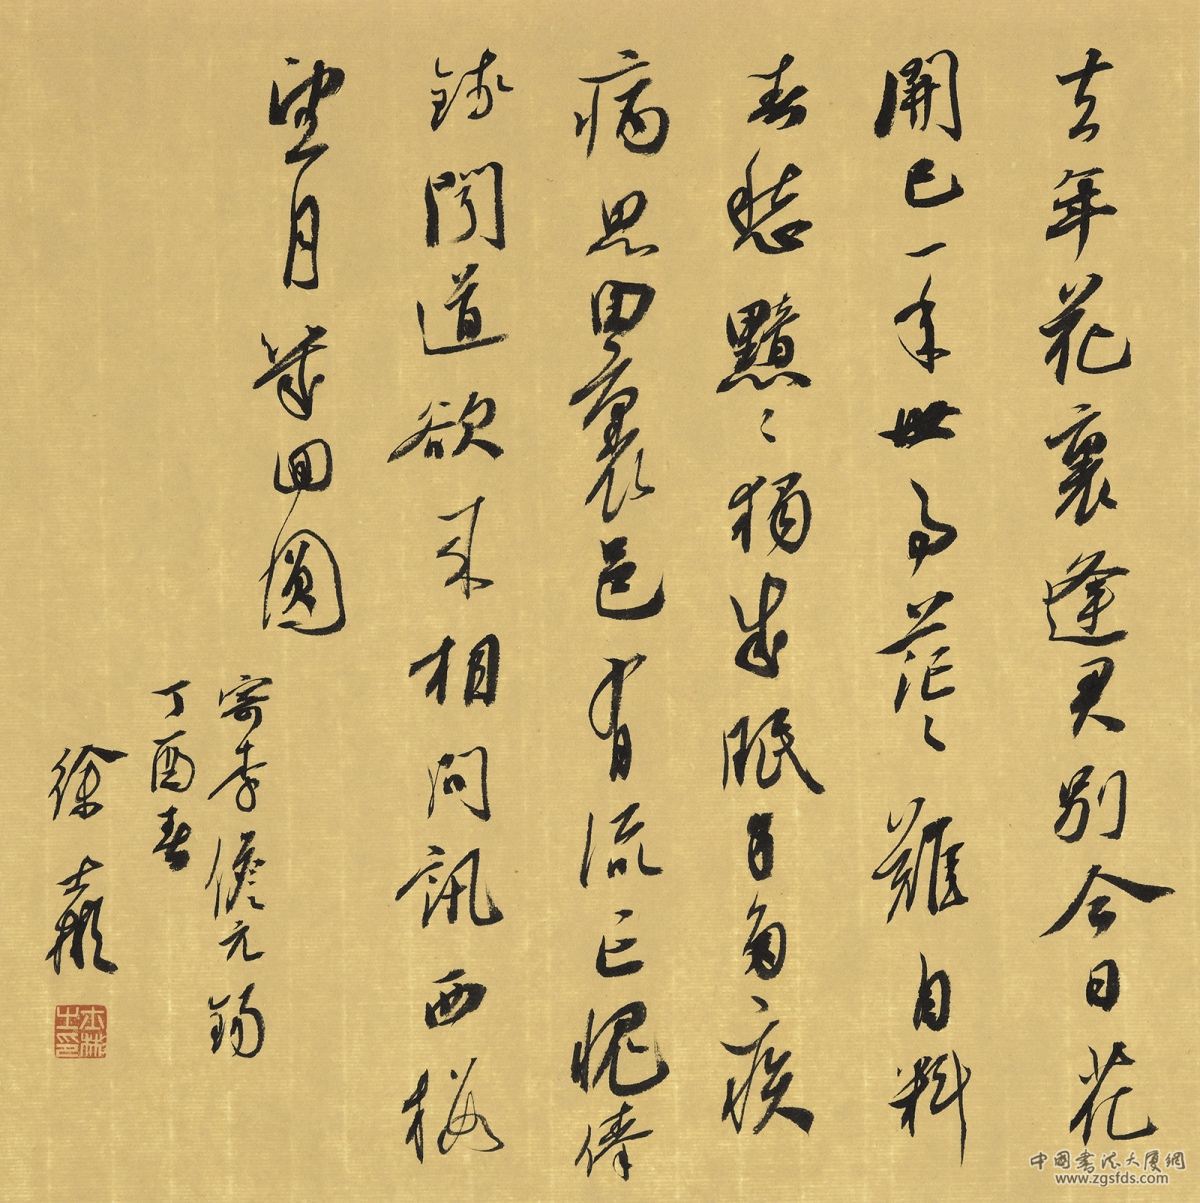 去年花裏逢君别今日花
開已一年世事茫〻難自料
春愁黯〻獨成眠身多疾
病思田裏邑有流亡愧俸
錢聞道欲来相問訊西樓
望月幾回圓
寄李儋元錫
丁酉春
徐士彬
中国书法大厦網
www.zgsfds.com